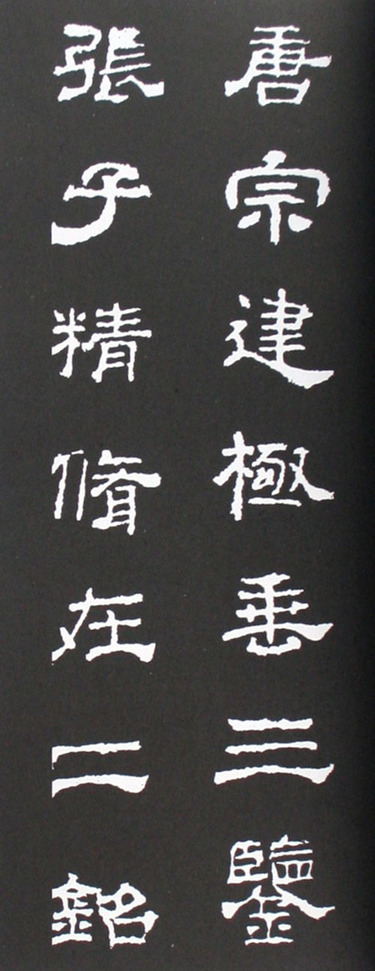 唐宗建極垂三鑒
張子精脩在二銘